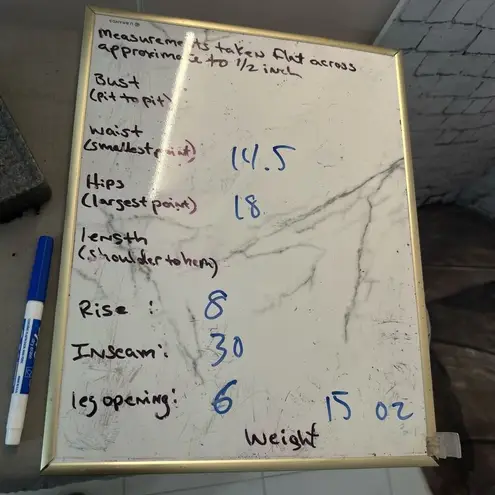 Measurements taken flat across
approximate to 1/2 inch
Bust
(pit to pit)
Waist
(smallest point) 14.5
Hips
(largest point) 18
length
(shoulder to hem)
Rise : 8
Inseam: 30
leg opening: 6
15 oz
Weight